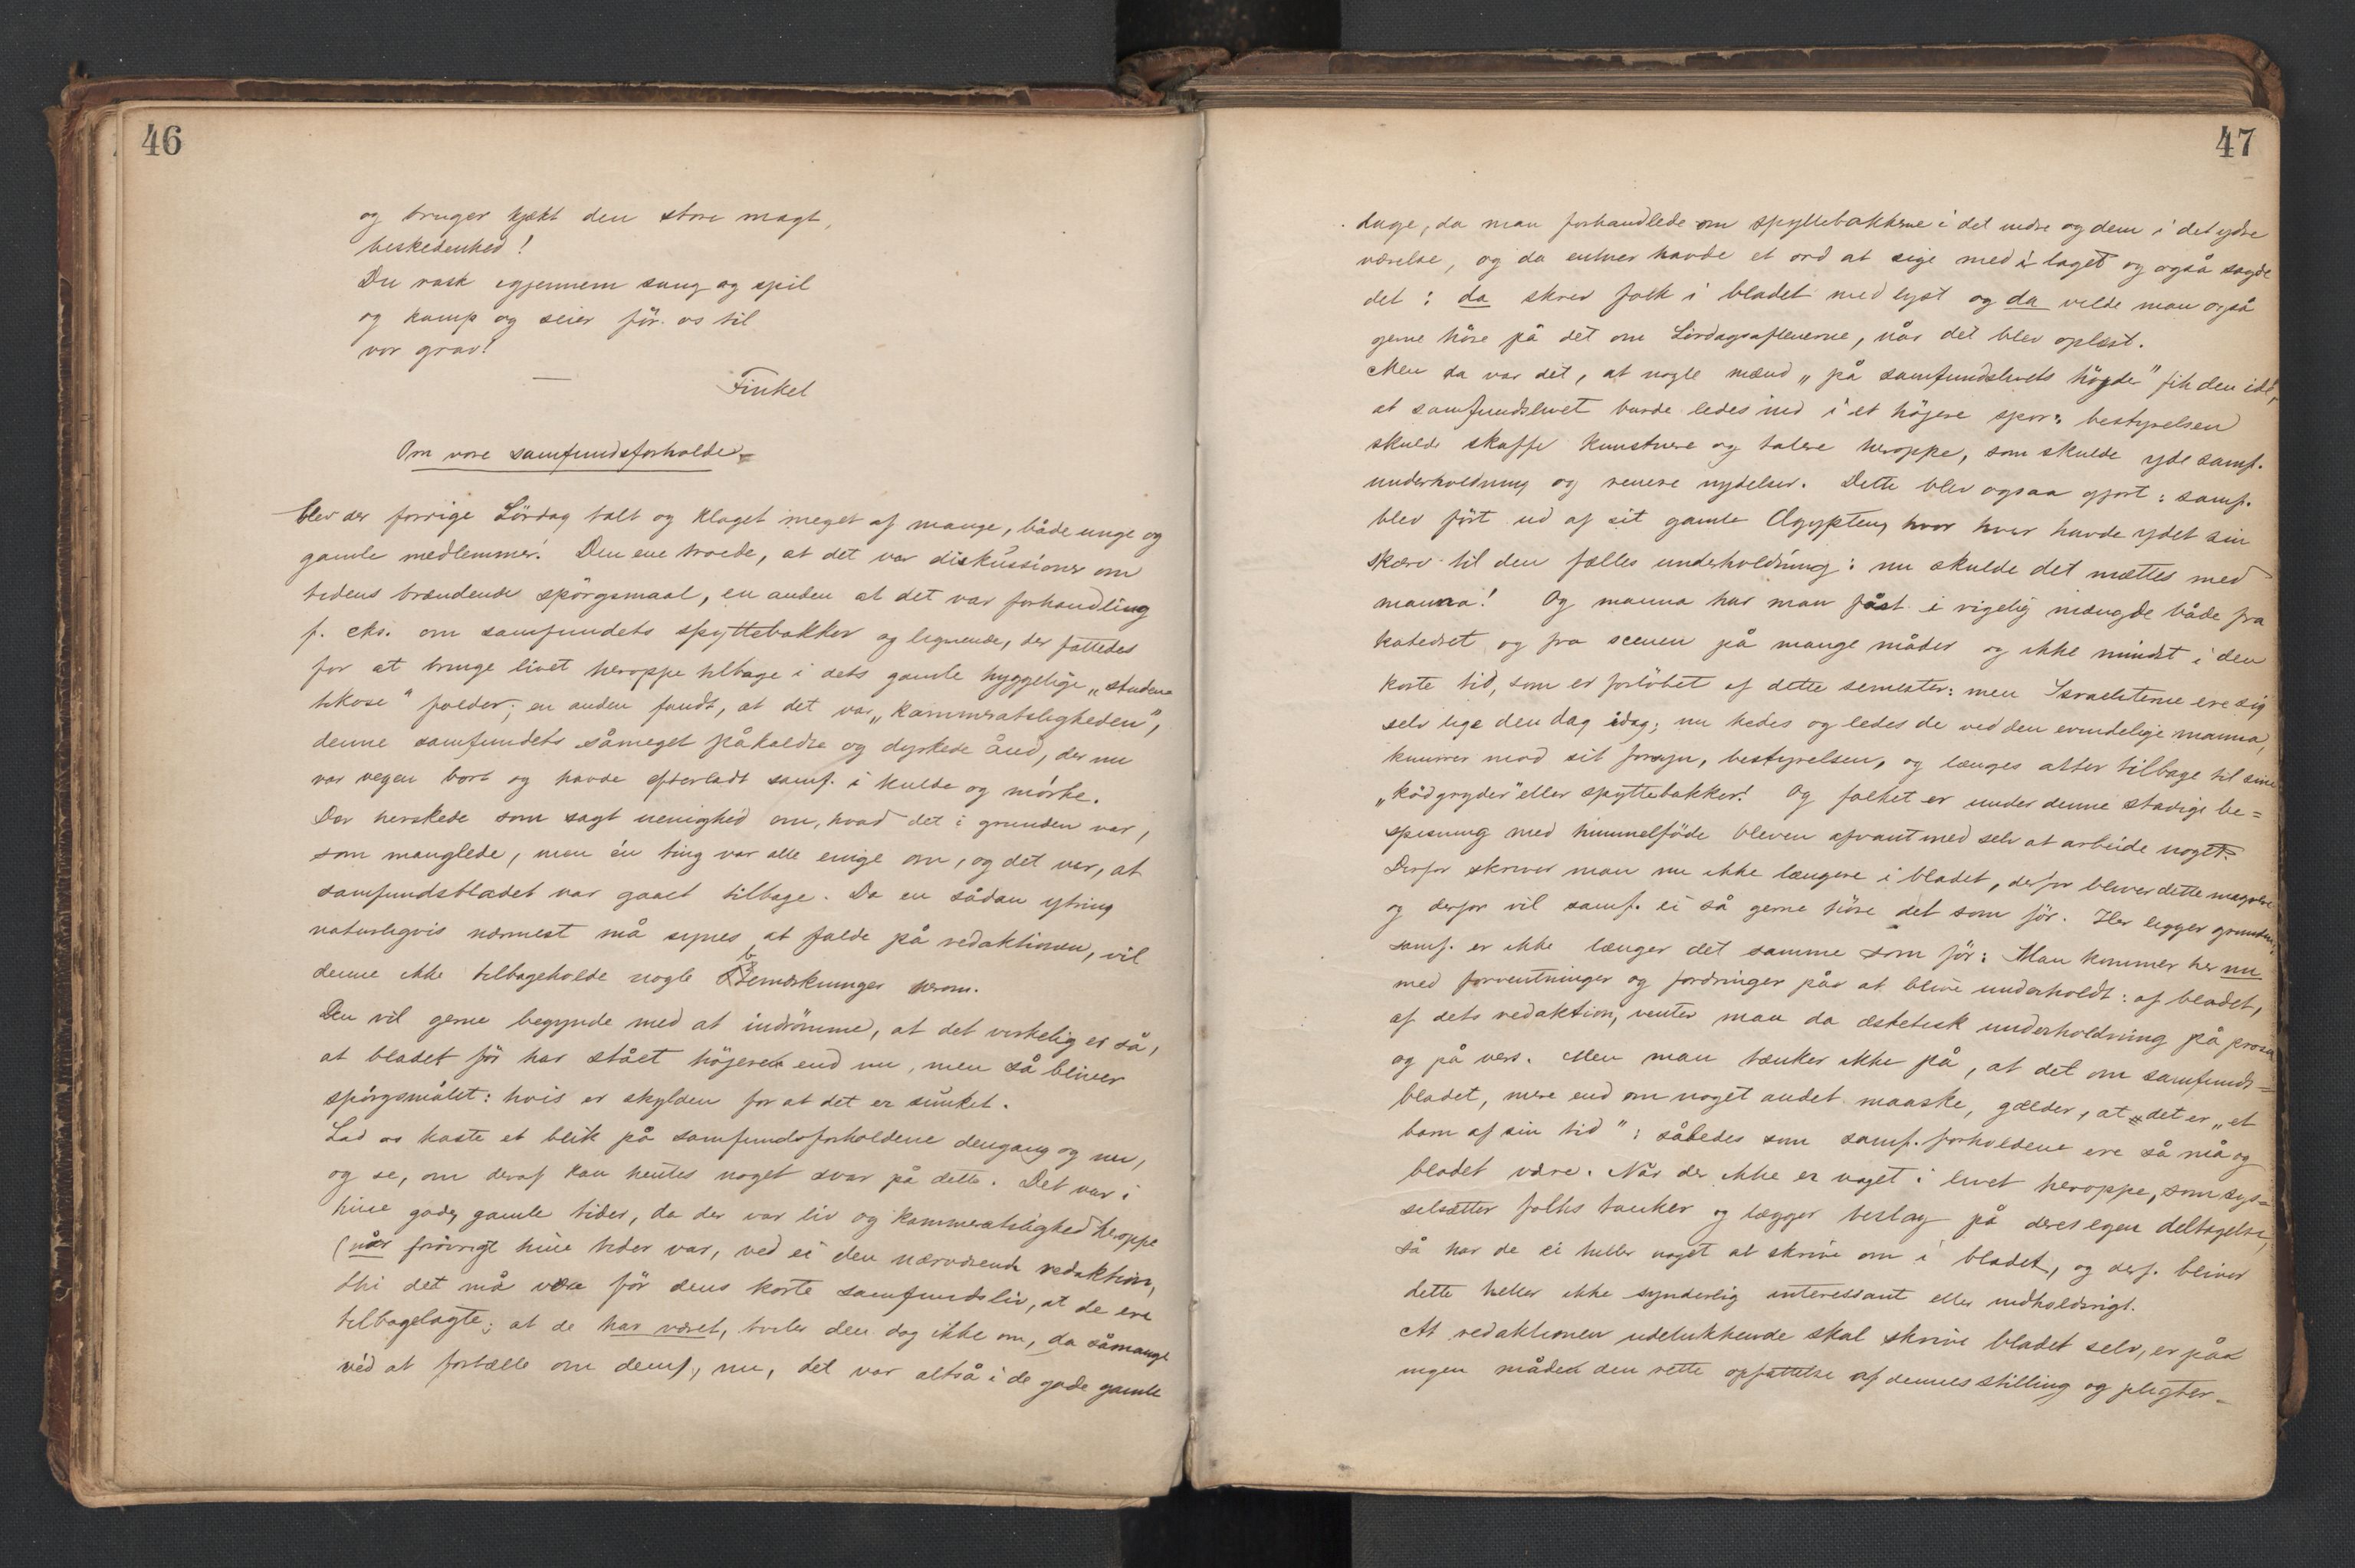 46
og bruger kjækt den store magt,
beskedenhed!
Du rask igjennem sang og spil
og kamp og seier för os til
vor grav!
—
Finkel
Om vore samfundsforholde
blev der forrige Lördag talt og klaget meget af mange, både unge og
gamle medlemmer. Den ene troede, at det var diskussioner om
tidens brændende spörgsmaal, en anden at det var forhandling
f. eks. om samfundets spyttebakker og lignende, der fattedes
for at bringe livet heroppe tilbage i dets gamle hyggelige „studen-
tikose" folder; en anden fandt, at det var „kammeratsligheden",
denne samfundets såmeget påkaldte og dyrkede ånd, der nu
var vegen bort og havde efterladt samf. i kulde og mörke.
Der herskede som sagt uenighed om, hvad det i grunden var,
som manglede, men én ting var alle enige om, og det var, at
samfundsbladet var gaaet tilbage. Da en sådan ytring
naturligvis nærmest må synes at falde på redaktionen, vil
denne ikke tilbageholde nogle bemærkninger herom.
Den vil gerne begynde med at indrömme, at det virkelig er så,
at bladet för har stået höjere end nu, men så bliver
spörgsmålet: hvis er skylden for at det er sunket.
Lad os kaste et blik på samfundsforholdene dengang og nu,
og se, om deraf kan hentes noget svar på dette. Det var i
hine gode, gamle tider, da der var liv og kammeratslighed heroppe
(når forövrigt hine tider var, ved ei den nærværende redaktion,
thi det må være för dens korte samfundsliv, at de ere
tilbagelagte; at de har været, tviler den dog ikke om, da såmange
véd at fortælle om dem), nu, det var altså i de gode gamle
47
dage, da man forhandlede om spyttebakkerne i det indre og dem i det ydre
værelse, og da enhver havde et ord at sige med i laget og også sagde
det: da skrev folk i bladet med lyst og da vilde man også
gerne höre på det om Lördagsaftenerne, når det blev oplæst.
Men da var det, at nogle mænd „på samfundslivets höyde" fik den idé,
at samfundslivet burde ledes ind i et höjere spor: bestyrelsen
skulde skaffe kunstnere og talere heroppe, som skulde yde samf.
underholdning og renere nydelser. Dette blev ogsaa gjort: samf.
blev fört ud af sit gamle Ægypten, hvor hver havde ydet sin
skærv til den fælles underholdning: nu skulde det mættes med
manna! Og manna har man fåst i rigelig mængde både fra
katedret og fra scenen på mange måder og ikke mindst i den
korte tid, som er forlöbet af dette semester: men Israeliterne ere sig
selv lige den dag idag; nu kedes og ledes de ved den evindelige manna,
knurrer mod sit forsyn, bestyrelsen, og længes atter tilbage til sine
„ködgryder" eller spyttebakker! Og folket er under denne stadige be=
spisning med himmelföde bleven afvant med selv at arbeide noget.
Derfor skriver man nu ikke længere i bladet, derfor bliver dette magrere
og derfor vil samf. ei så gerne höre det som för. Her ligger grunden;
samf. er ikke længer det samme som för: Man kommer her nu
med forventninger og fordringer på at blive underholdt: af bladet,
af dets redaktion, venter man da æstetisk underholdning på prosa
og på vers. Men man tænker ikke på, at det om samfunds=
bladet, mere end om noget andet maaske, gælder, at det er „et
barn af sin tid": således som samf. forholdene ere så må og
bladet være. Når der ikke er noget i livet heroppe, som sys=
selsætter folks tanker og lægger beslag på deres egen deltagelse,
så har de ei heller noget at skrive om i bladet, og derf. bliver
dette heller ikke synderlig interessant eller indholdsrigt.
At redaktionen udelukkende skal skrive bladet selv, er på
ingen måde den rette opfattelse af dennes stilling og pligter.